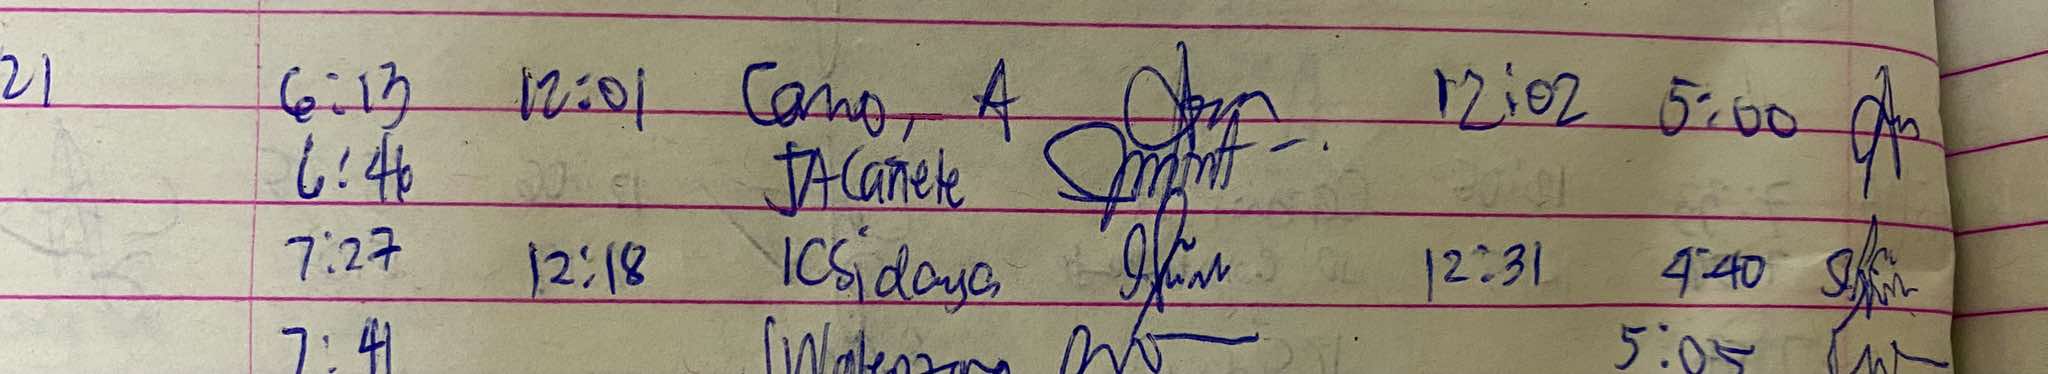 21 6:13 12:01 Cano, A 12:02 5:00
6:46 JACañete
7:27 12:18 ICSidaya 12:31 4:40
7:41 5:05